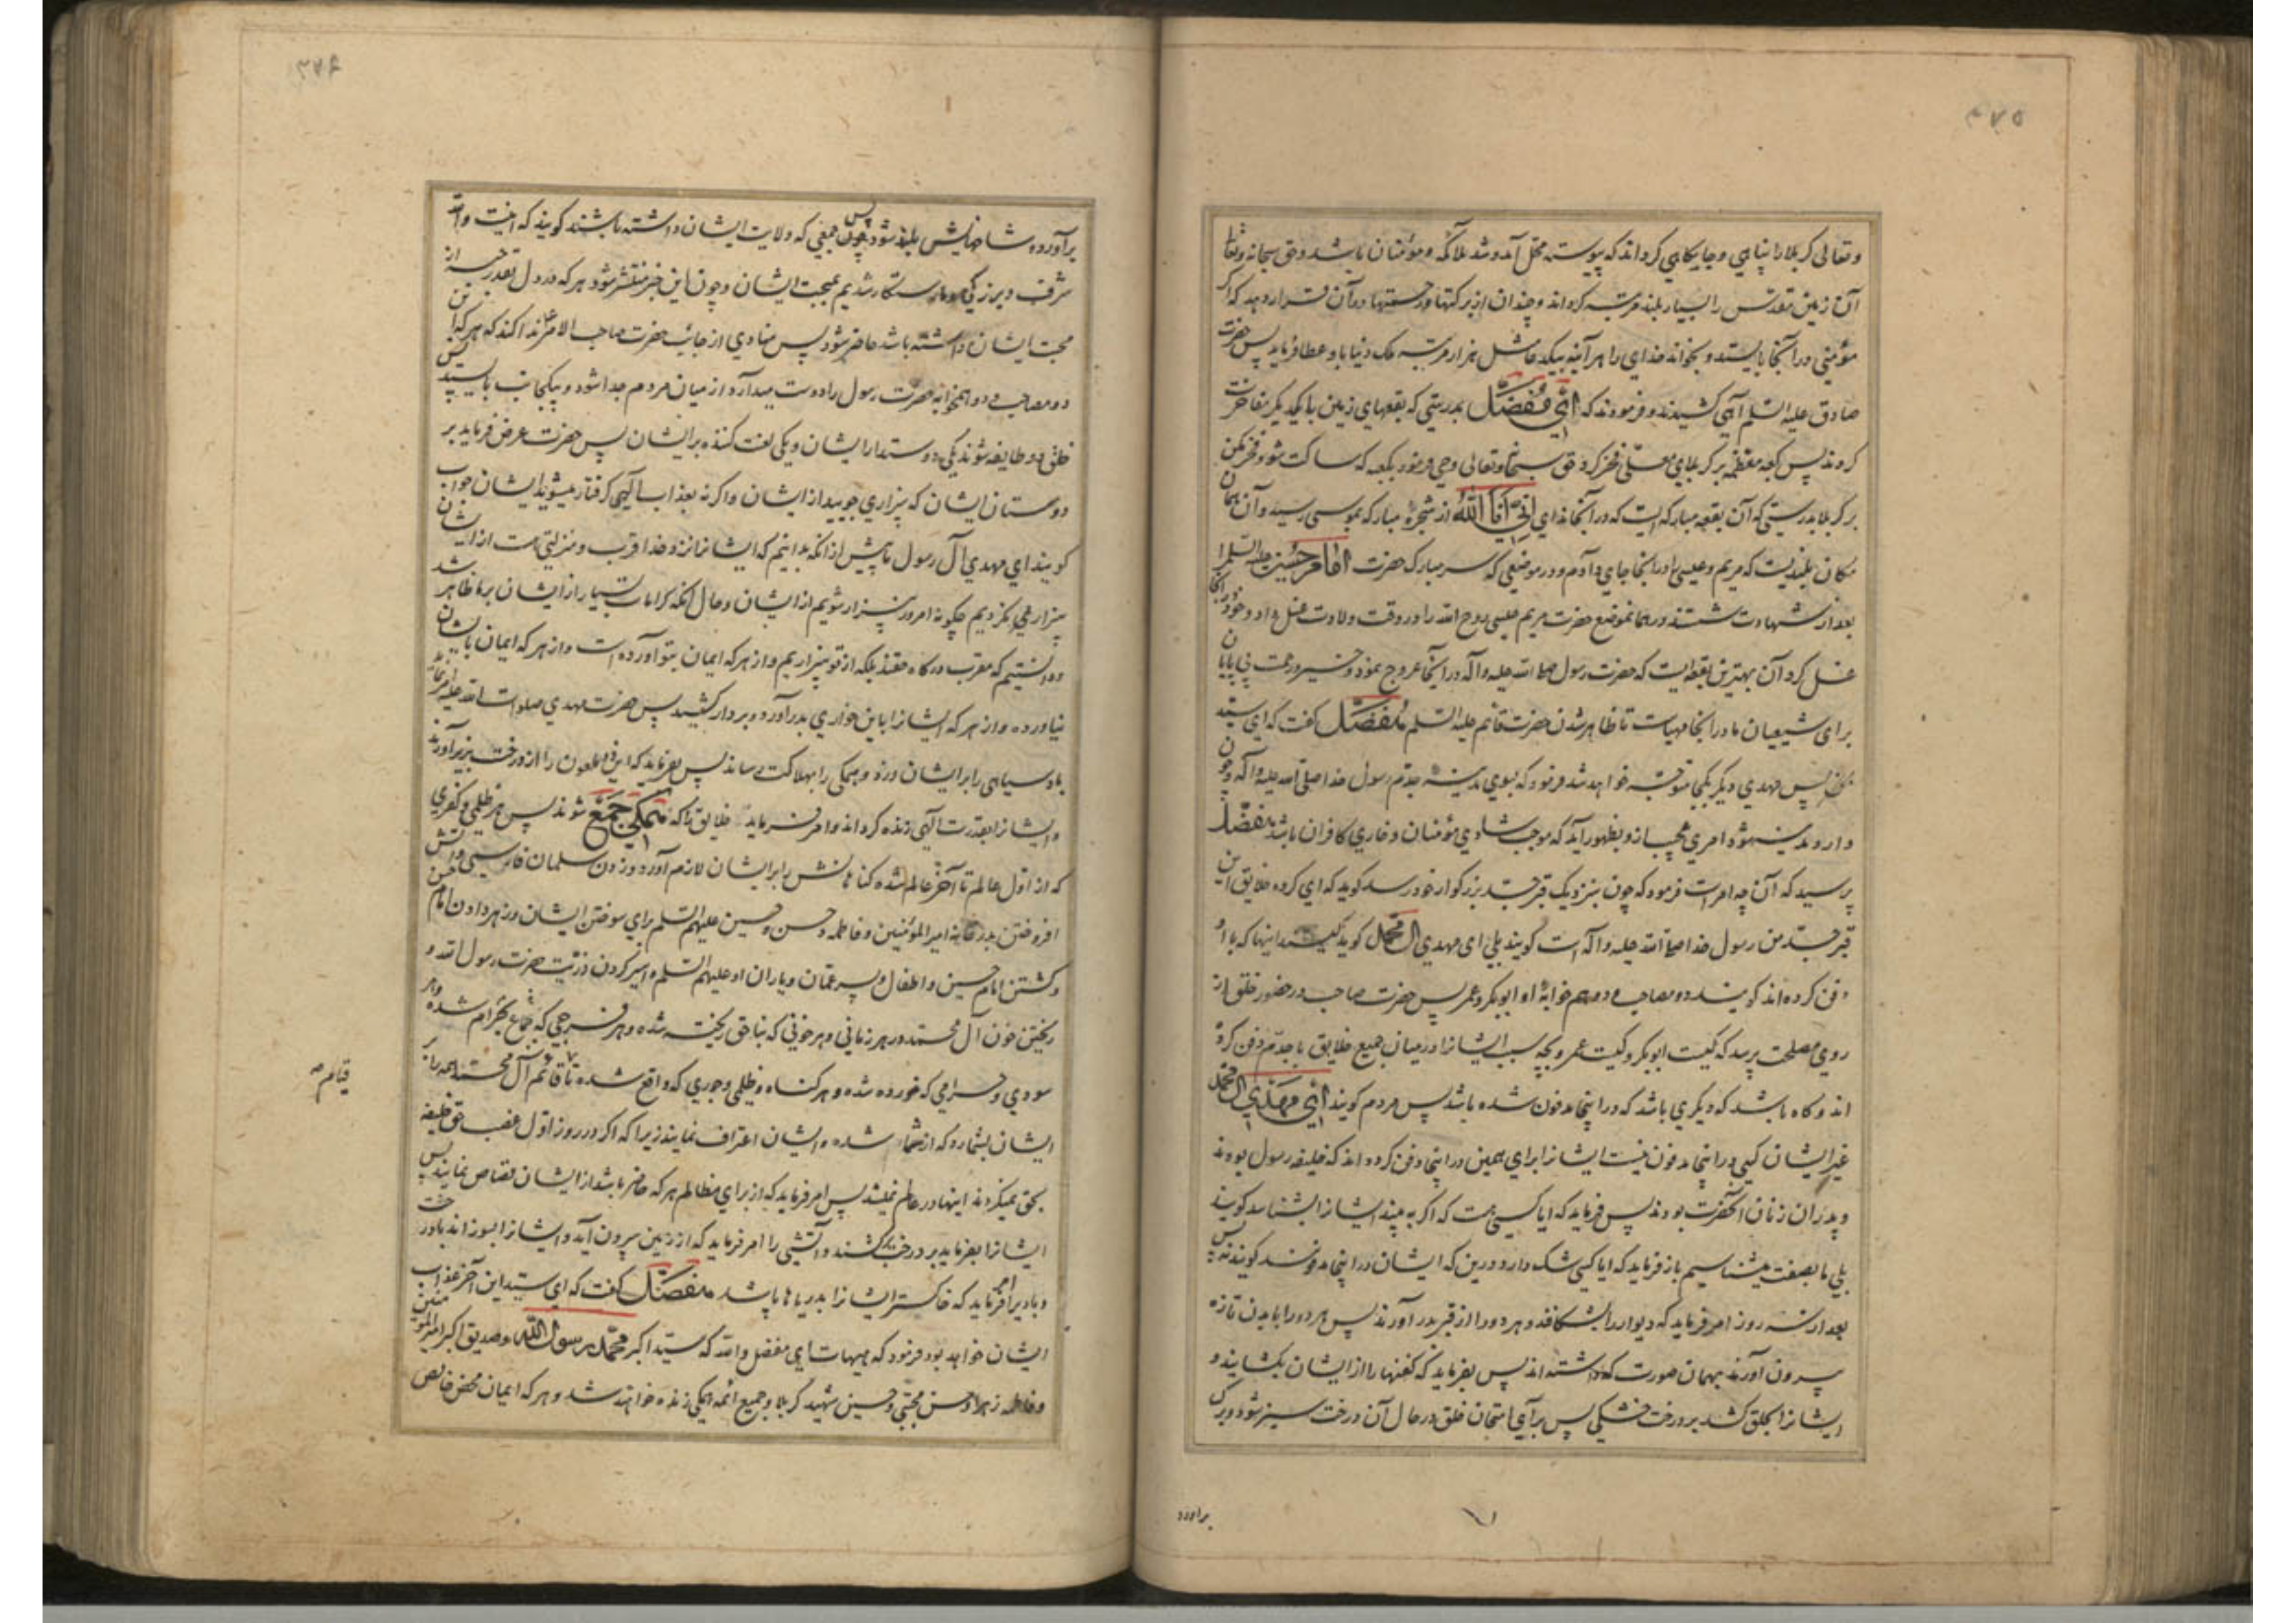 ۴۷۵
و تعالی کربلا را پناهی و جایگاهی گرداند که پیوسته محل آمد و شد ملائکه و مؤمنان باشد و حق سبحانه و تعالی
آن زمین مقدس را بسیار بلند مرتبه گرداند و چندان از برکتها و رحمتها در آن قرار دهد که اگر
مؤمنی در آنجا بایستد و بخواند خدای را هر آینه بیکدعا مثل هزار مرتبه ملک دنیا باو عطا فرماید پس حضرت
صادق علیه السلم آهی کشیدند و فرمودند که ای مفضل بدرستی که بقعهای زمین با یکدیگر مفاخرت
کردند پس کعبه معظمه بر کربلای معلی فخر کرد حق سبحانه و تعالی وحی فرمود بکعبه که ساکت شو و فخر مکن
بر کربلا بدرستی که آن بقعه مبارکه ایست که در آنجا ندای انی انا الله از شجره مبارکه بموسی رسید و آن همان
مکان بلندیست که مریم و عیسی را در آنجا جای دادم و در موضعی که سر مبارک حضرت امام حسین علیه السلم را
بعد از شهادت شستند در همانموضع حضرت مریم عیسی روح الله را در وقت ولادت غسل داد و خود در آنجا
غسل کرد و آن بهترین بقعه ایست که حضرت رسول صلی الله علیه و آله در آنجا عروج نمود و خیر و رحمت بی پایان
برای شیعیان ما در آنجا مهیاست تا ظاهر شدن حضرت قائم علیه السلم مفضل گفت که ای سید
من پس مهدی دیگر بکجا متوجه خواهد شد فرمود که بسوی مدینه جدم رسول خدا صلی الله علیه و آله و چون
وارد مدینه شود امری عجیب از و بظهور آید که موجب شادی مؤمنان و خاری کافران باشد مفضل
پرسید که آن چه امر است فرمود که چون بنزدیک قبر جد بزرگوار خود رسد گوید که ای گروه خلایق این
قبر جد من رسول خدا صلی الله علیه و آله است گویند بلی ای مهدی آل محمد گوید کیستند اینها که با او
دفن کرده اند گویند دو مصاحب و دو هم خوابه او ابوبکر و عمر پس حضرت صاحب در حضور خلق از
روی مصلحت پرسد که کیست ابوبکر و کیست عمر و بچه سبب ایشانرا در میان جمیع خلایق با جدم دفن کرده
اند و گاه باشد که دیگری باشد که در اینجا مدفون شده باشد پس مردم گویند ای مهدی آل محمد
غیر ایشان کسی در اینجا مدفون نیست ایشانرا برای همین در اینجا دفن کرده اند که خلیفه رسول بودند
و پدران زنان آنحضرت بودند پس فرماید که آیا کسی هست که اگر به بیند ایشانرا بشناسد گویند
بلی ما بصفت میشناسیم باز فرماید که آیا کسی شک دارد درین که ایشان در اینجا مدفونند گویند نه پس
بعد از سه روز امر فرماید که دیوار را بشکافند و هر دو را از قبر بدر آورند پس هر دو را با بدن تازه
بیرون آورند بهمان صورت که داشته اند پس بفرماید که کفنها را از ایشان بکشایند و
ایشانرا بحلق کشند بر درخت خشکی پس برای امتحان خلق در حال آن درخت سبز شود و برگ
برآورد
۴۷۶
برآورده شاخهایش بلند شود پس چون جمعی که ولایت ایشان داشته باشند گویند که اینست والله
شرف و بزرگی و ما رستگار شدیم بمحبت ایشان و چون این خبر منتشر شود هر که در دل بقدر حبه از
محبت ایشان داشته باشد حاضر شود پس منادی از جانب حضرت صاحب الامر ندا کند که هر که این
دو مصاحب و دو همخوابه حضرت رسول را دوست میدارد از میان مردم جدا شود و بیکجانب بایستد پس
خلق دو طایفه شوند یکی دوستدار ایشان و یکی لعنت کننده بر ایشان پس حضرت عرض فرماید بر
دوستان ایشان که بیزاری جویید از ایشان و اگر نه بعذاب الهی گرفتار میشوید ایشان جواب
گویند ای مهدی آل رسول ما پیش از آنکه بدانیم که ایشانرا نزد خدا قرب و منزلتی هست از ایشان
بیزاری نکردیم چگونه امروز بیزار شویم از ایشان و حال آنکه کرامات بسیار از ایشان بر ما ظاهر شد
و دانستیم که مقرب درگاه حقند بلکه از تو بیزاریم و از هر که ایمان بتو آورده است و از هر که ایمان بایشان
نیاورده و از هر که ایشانرا باین خواری بدر آورد و بردار کشید پس حضرت مهدی صلوات الله علیه امر نماید
باد سیاهی را بر ایشان وزد و همگی را بهلاکت رساند پس بفرماید که این دو ملعون را از درخت بزیر آورند
و ایشانرا بقدرت الهی زنده گرداند و امر فرماید خلایق را که همگی جمع شوند پس هر ظلمی و کفری
که از اول عالم تا آخر عالم شده گناهانش را بر ایشان لازم آورد و زدن سلمان فارسی و آتش
افروختن بدر خانه امیر المؤمنین و فاطمه و حسن و حسین علیهم السلم برای سوختن ایشان و زهر دادن امام حسن
و کشتن امام حسین و اطفال و پسر عمان و یاران او علیهم السلم و اسیر کردن ذریت حضرت رسول الله و
ریختن خون آل محمد در هر زمانی و هر خونی که بناحق ریخته شده و هر فرجی که جماع بحرام شده و هر
سودی و حرامی که خورده شده و هر گناه و ظلمی و جوری که واقع شده تا قائم آل محمد همه را بر
قیام
ایشان بشمارد که از شما شده و ایشان اعتراف نمایند زیرا که اگر در روز اول غصب حق خلیفه
بحق نمیکردند اینها در عالم نمیشد پس امر فرماید که از برای مظالم هر که حاضر باشد از ایشان قصاص نمایند پس
ایشانرا بفرماید بر درخت کشند و آتشی را امر فرماید که از زمین بیرون آید و ایشانرا بسوزاند با درخت
و باد را امر فرماید که خاکستر ایشانرا بدریاها پاشد مفضل گفت که ای سید این آخر عذاب
ایشان خواهد بود فرمود که هیهات ای مفضل والله که سید اکبر محمد رسول الله و صدیق اکبر امیر المؤمنین
و فاطمه زهرا و حسن مجتبی و حسین شهید کربلا و جمیع ائمه همگی زنده خواهند شد و هر که ایمان محض خالص